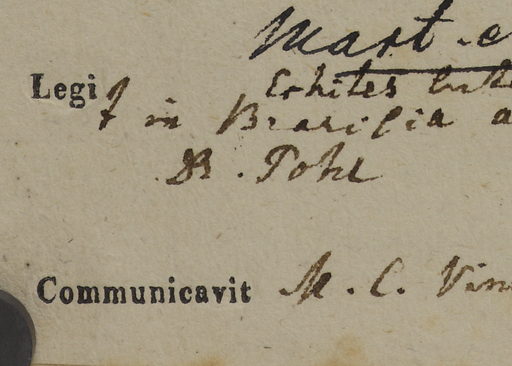 Mart. e
Echites lute
Legi t in Brasilia a
D. Pohl
Communicavit M. C. Vin